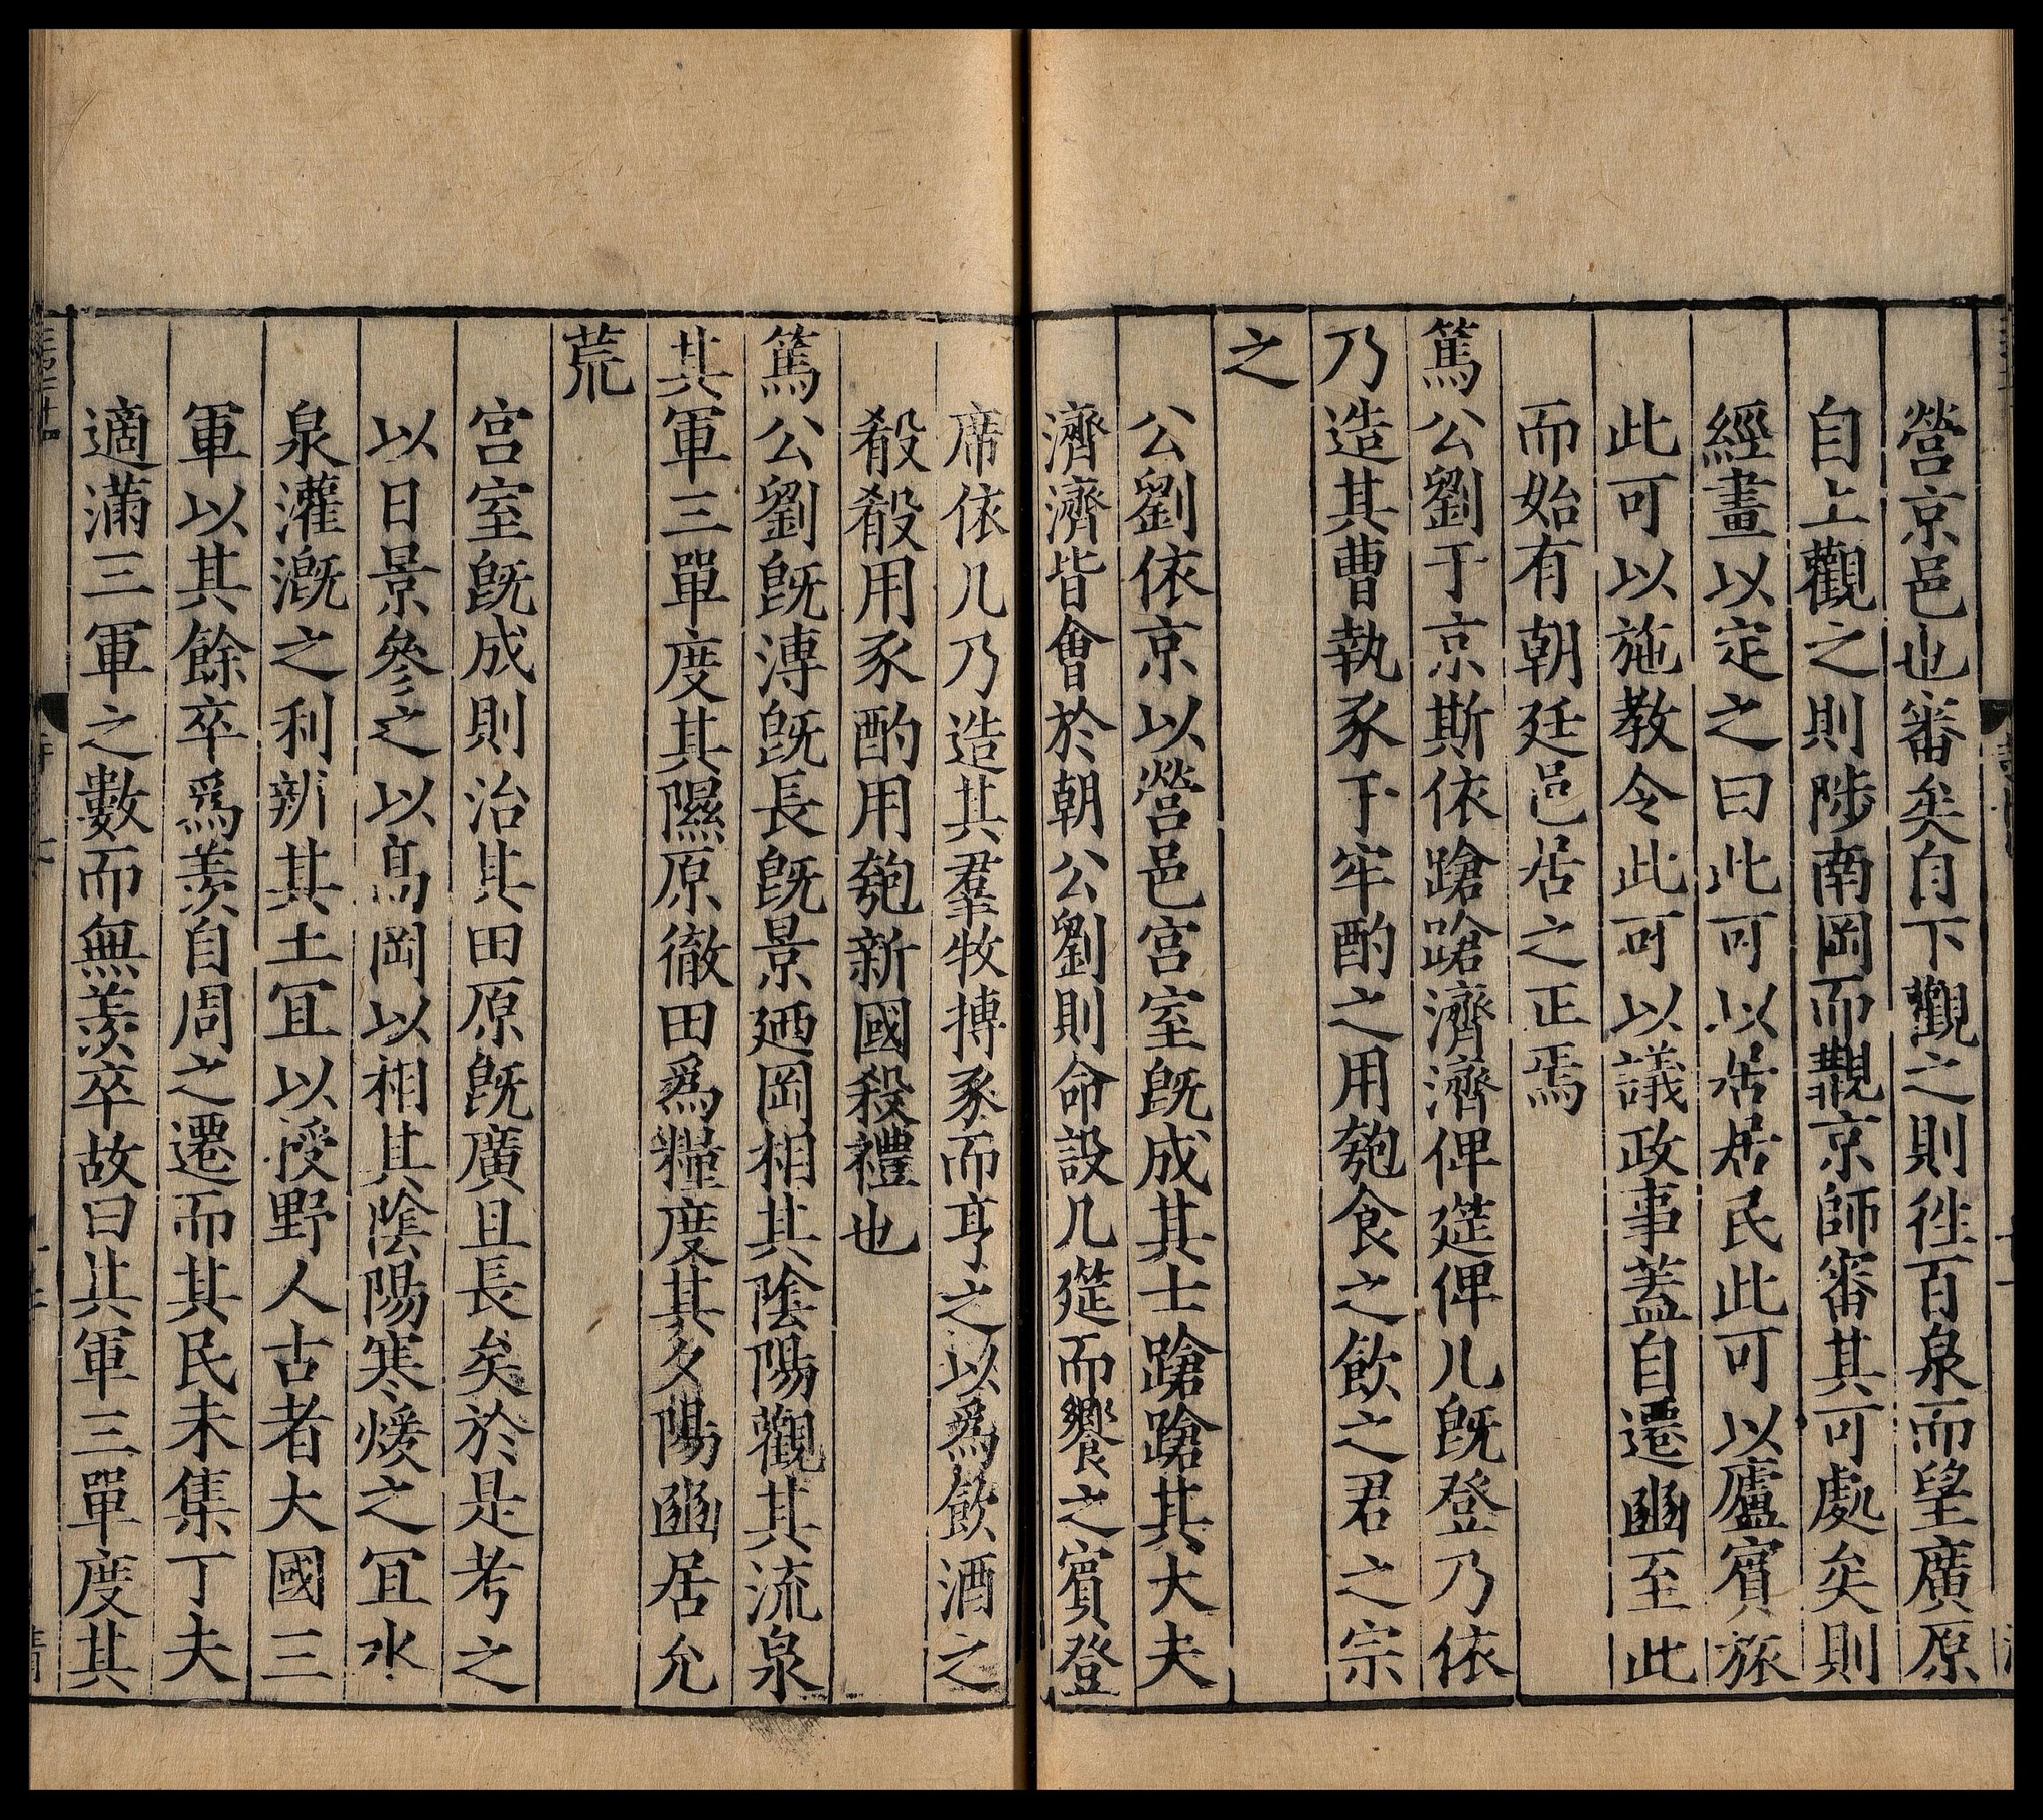 營京邑也審矣自下觀之則徃百泉而望廣原
自上觀之則陟南岡而覯京師審其可處矣則
經畫以定之曰此可以居居民此可以廬賓旅
此可以施教令此可以議政事蓋自遷豳至此
而始有朝廷邑居之正焉
篤公劉于京斯依蹌蹌濟濟俾筵俾几旣登乃依
乃造其曹執豕于牢酌之用匏食之飲之君之宗
之
公劉依京以營邑宫室旣成其士蹌蹌其大夫
濟濟皆會於朝公劉則命設几筵而饗之賓登
席依几乃造其羣牧搏豕而亨之以爲飲酒之
殽殽用豕酌用匏新國殺禮也
篤公劉旣溥旣長旣景廼岡相其陰陽觀其流泉
其軍三單度其隰原徹田爲糧度其夕陽豳居允
荒
宫室旣成則治其田原旣廣且長矣於是考之
以日景參之以高岡以相其陰陽寒煖之宜水
泉灌漑之利辨其土宜以授野人古者大國三
軍以其餘卒爲羨自周之遷而其民未集丁夫
適滿三軍之數而無羨卒故曰其軍三單度其